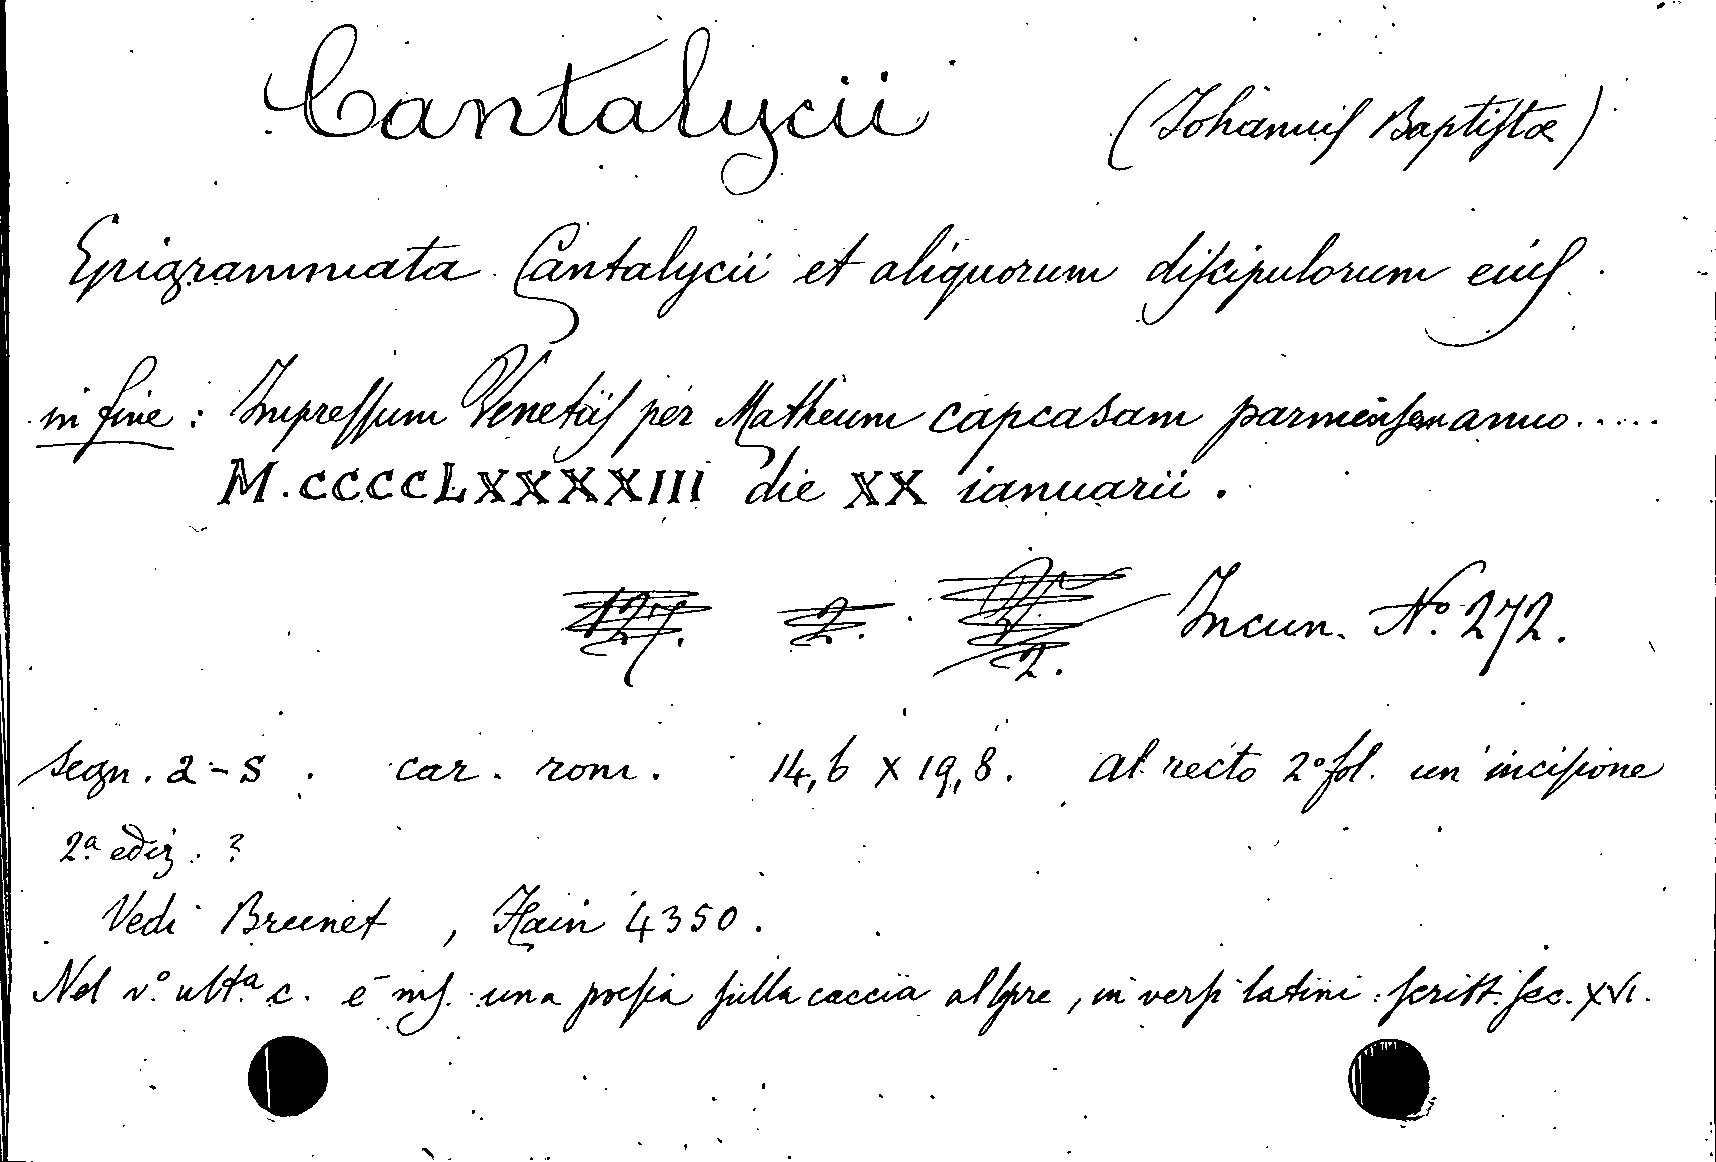 Cantalycii (Iohannis Baptistæ)
Epigrammata Cantalycii et aliquorum discipulorum eius
in fine: Impressum Venetiis per Matheum capcasam parmensem anno.....
M.CCCCLXXXXIII die XX ianuarii.
127. 2. 2. Incun. Nº. 272.
segn. a-s. car. rom. 14,6 x 19,8. al recto 2º fol. un incisione
2ª ediz. ?
Vedi Brunet, Hain 4350.
Nel vº. ultª c. è ms. una poesia sulla caccia al lepre, in versi latini. scritt. sec. XVI.